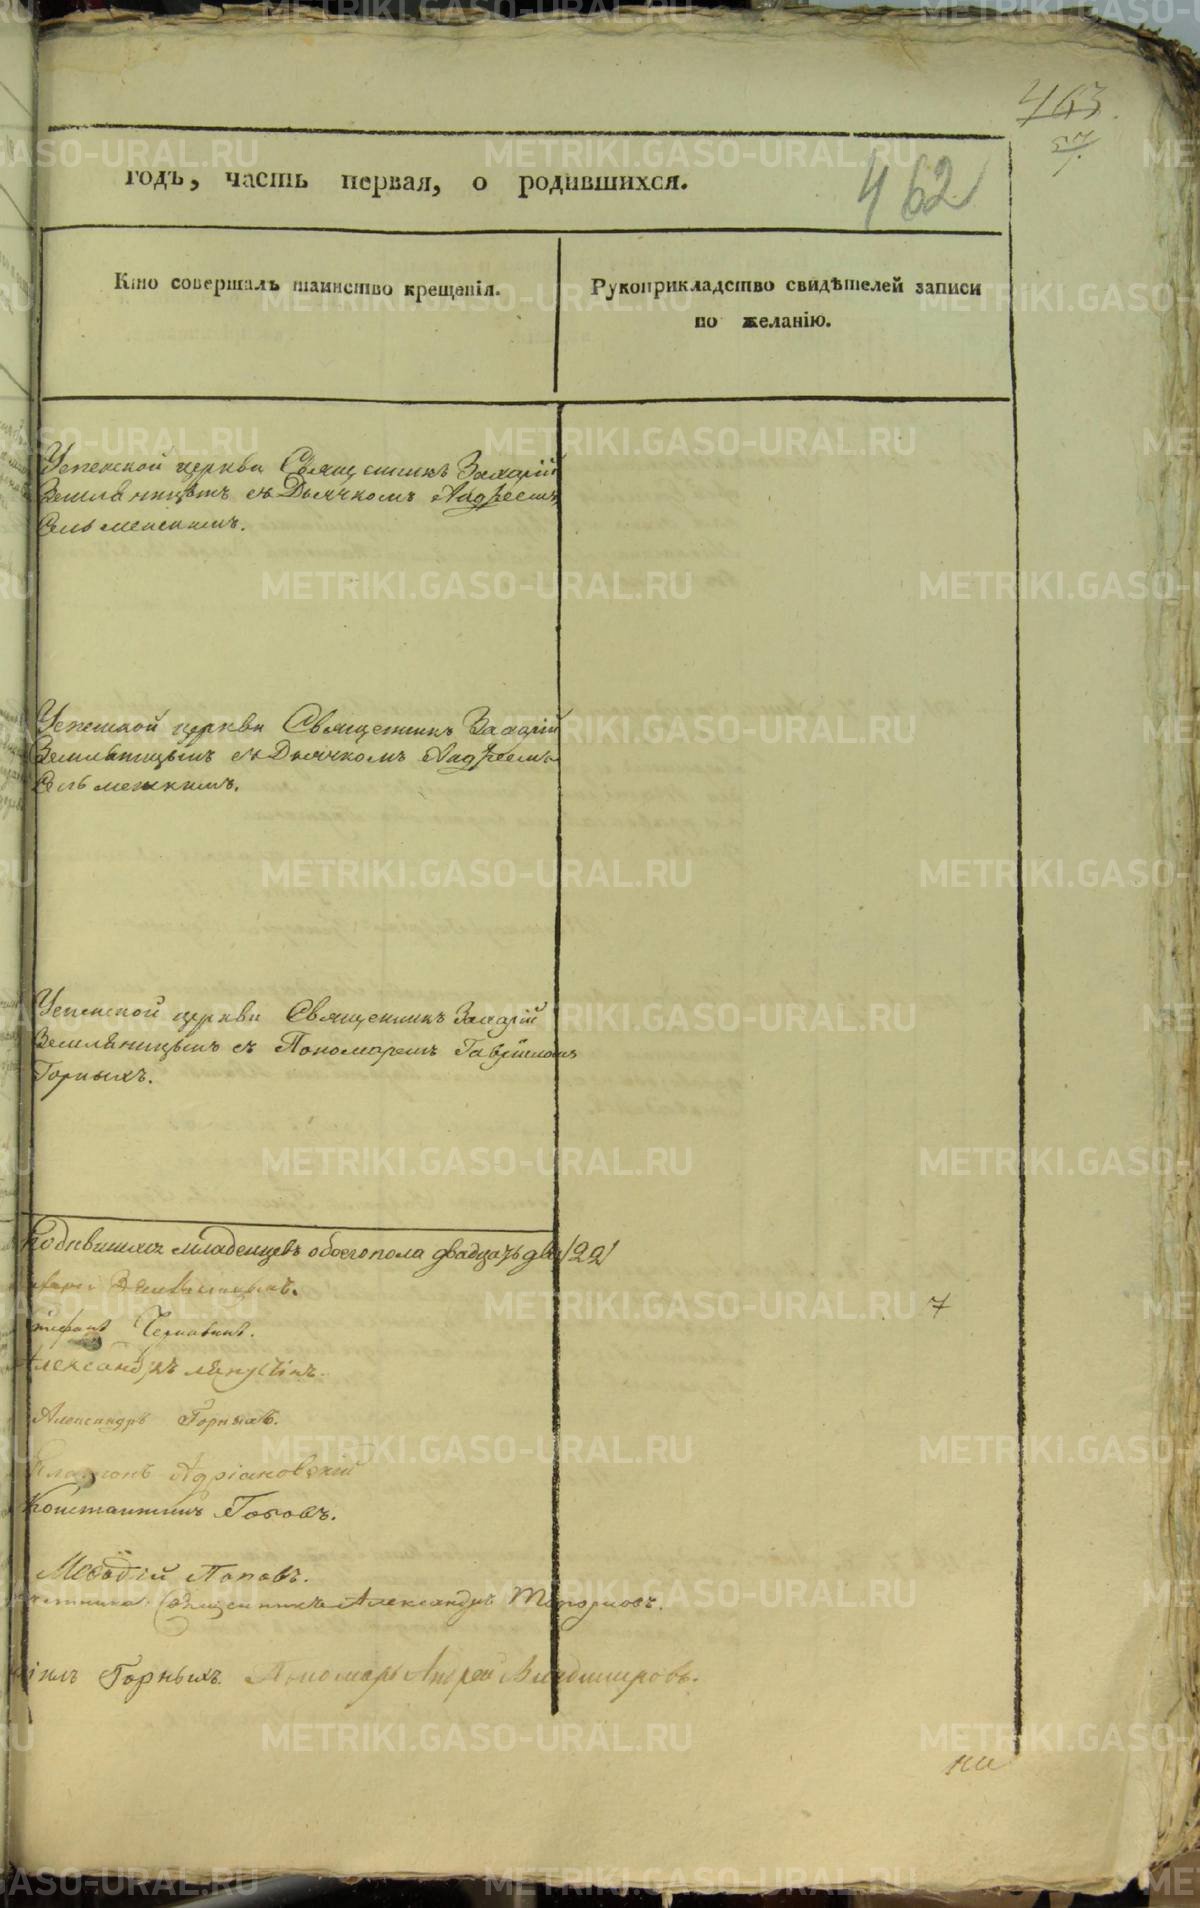 463
27
462
годъ, часть первая, о родившихся.
Кто совершалъ таинство крещенія.
Рукоприкладство свидѣтелей записи
по желанію.
Успенской церкви Священникъ Захарій
Земляницынъ съ Дьячкомъ Андреемъ
Сельменскимъ.
Успенской церкви Священникъ Захарій
Земляницынъ съ Дьячкомъ Андреемъ
Сельменскимъ.
Успенской церкви Священникъ Захарій
Земляницынъ съ Пономаремъ Гавріиломъ
Горныхъ.
родившихся младенцевъ обоего пола двадцать два /22/
Земляницынъ.
Чернавинъ.
7
Александръ
Александръ Горныхъ.
Платонъ Адріановскій
Константинъ Поповъ.
Меѳодій Поповъ.
Священникъ Александръ Топорковъ.
іилъ Горныхъ. Пономарь Андрей Владимировъ.
METRIKI.GASO-URAL.RU